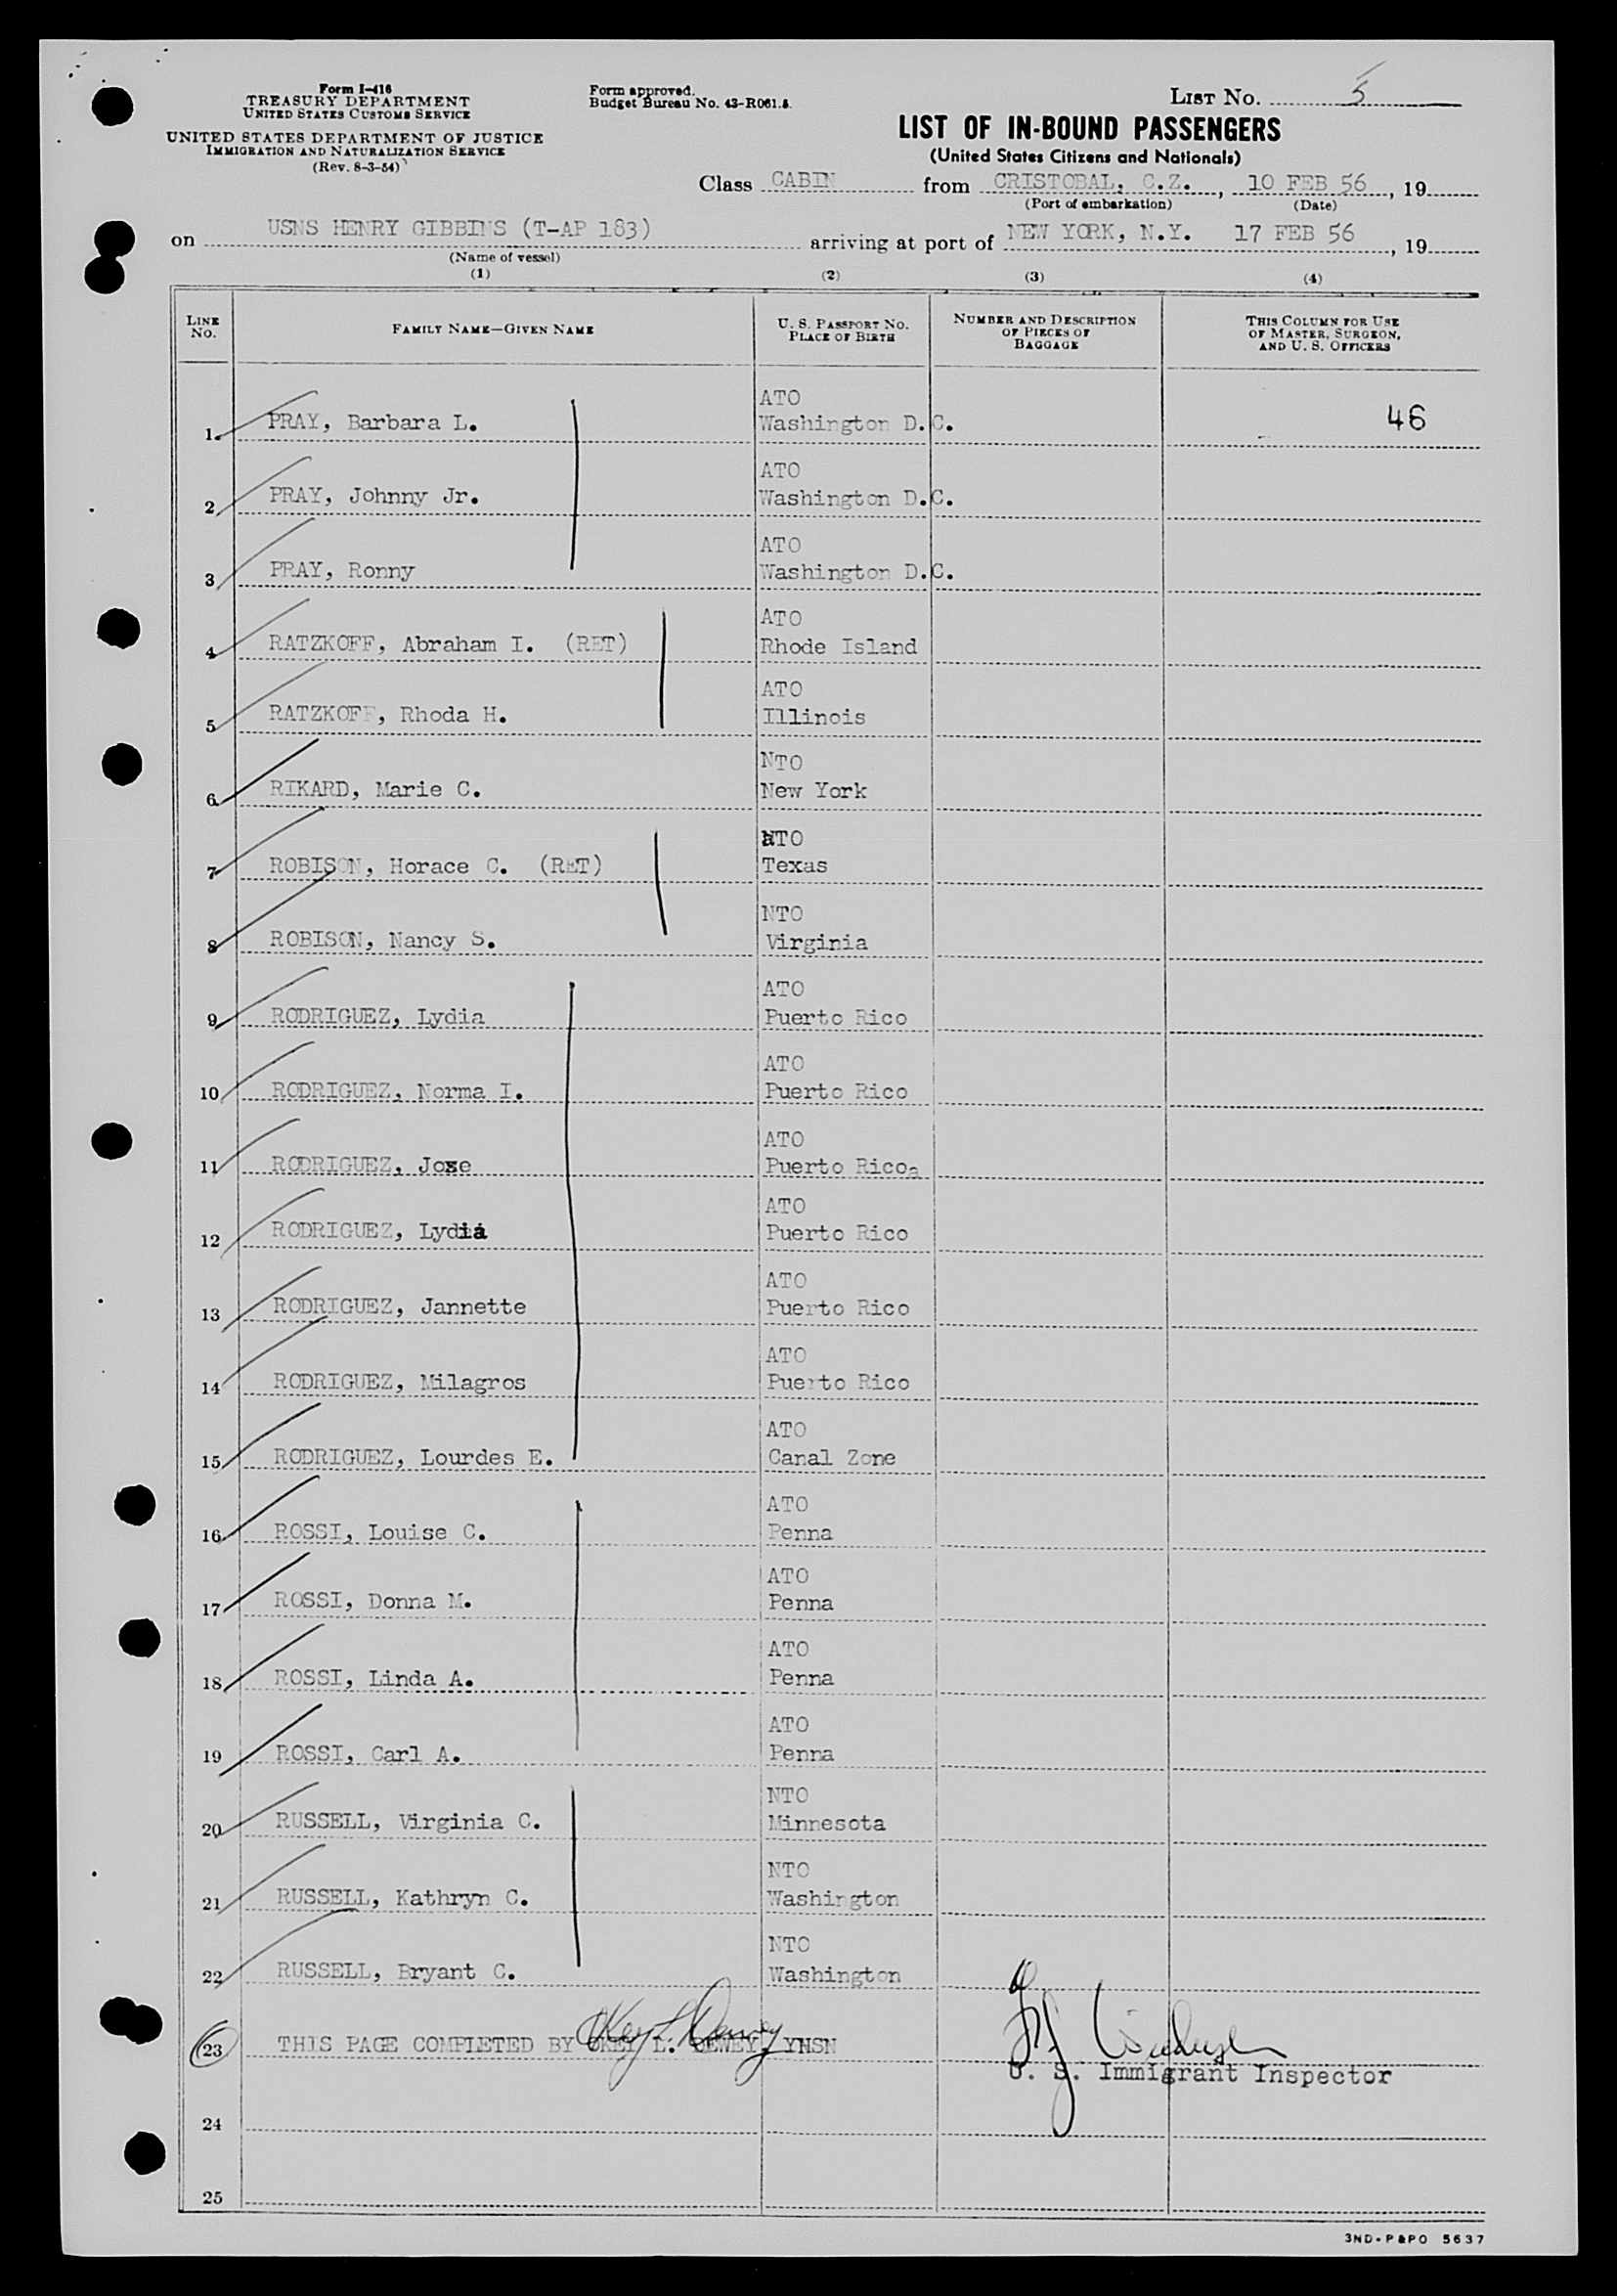 Form I-416
TREASURY DEPARTMENT
UNITED STATES CUSTOMS SERVICE
UNITED STATES DEPARTMENT OF JUSTICE
IMMIGRATION AND NATURALIZATION SERVICE
(Rev. 8-3-54)
Form approved.
Budget Bureau No. 43-R061.
LIST NO. 5
LIST OF IN-BOUND PASSENGERS
(United States Citizens and Nationals)
Class CABIN from CRISTOBAL, C.Z., 10 FEB 56, 19
(Port of embarkation) (Date)
on USNS HENRY GIBBINS (T-AP 183) arriving at port of NEW YORK, N.Y. 17 FEB 56, 19
(Name of vessel)
(1) (2) (3) (4)
LINE NO.
FAMILY NAME—GIVEN NAME
U. S. PASSPORT NO.
PLACE OF BIRTH
NUMBER AND DESCRIPTION
OF PIECES OF
BAGGAGE
THIS COLUMN FOR USE
OF MASTER, SURGEON,
AND U. S. OFFICERS
ATO
1 PRAY, Barbara L. Washington D.C. 46
ATO
2 PRAY, Johnny Jr. Washington D.C.
ATO
3 PRAY, Ronny Washington D.C.
ATO
4 RATZKOFF, Abraham I. (RET) Rhode Island
ATO
5 RATZKOFF, Rhoda H. Illinois
NTO
6 RIKARD, Marie C. New York
NTO
7 ROBISON, Horace C. (RET) Texas
NTO
8 ROBISON, Nancy S. Virginia
ATO
9 RODRIGUEZ, Lydia Puerto Rico
ATO
10 RODRIGUEZ, Norma I. Puerto Rico
ATO
11 RODRIGUEZ, Jose Puerto Rico
ATO
12 RODRIGUEZ, Lydia Puerto Rico
ATO
13 RODRIGUEZ, Jannette Puerto Rico
ATO
14 RODRIGUEZ, Milagros Puerto Rico
ATO
15 RODRIGUEZ, Lourdes E. Canal Zone
ATO
16 ROSSI, Louise C. Penna
ATO
17 ROSSI, Donna M. Penna
ATO
18 ROSSI, Linda A. Penna
ATO
19 ROSSI, Carl A. Penna
NTO
20 RUSSELL, Virginia C. Minnesota
NTO
21 RUSSELL, Kathryn C. Washington
NTO
22 RUSSELL, Bryant C. Washington
23 THIS PAGE COMPLETED BY OKEY L. DEWEY, YNSN
U. S. Immigrant Inspector
24
25
3ND-P&PO 5637